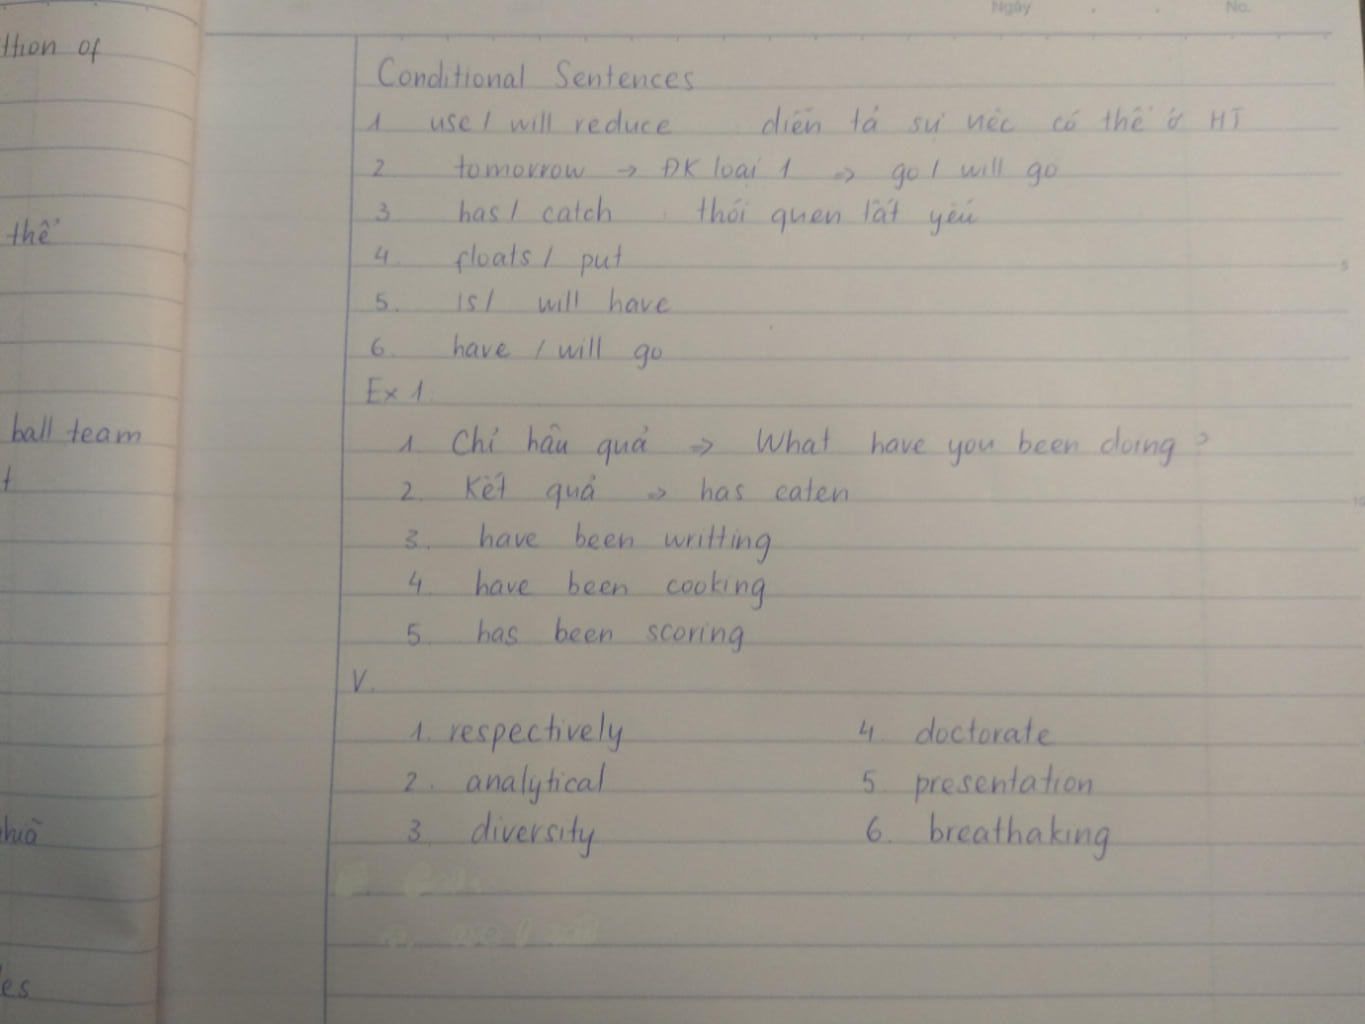 Ngày
No.
thion of
thể
ball team
t
es
Conditional Sentences
1 use / will reduce diễn tả sự việc có thể ở HT
2 tomorrow → ĐK loại 1 => go / will go
3 has / catch thói quen tất yếu
4. floats / put
5. is / will have
6. have / will go
Ex 1.
1. Chỉ hậu quả => What have you been doing?
2. Kết quả => has eaten
3. have been writting
4 have been cooking
5. has been scoring
V.
1. respectively 4. doctorate
2. analytical 5 presentation
3. diversity 6. breathaking